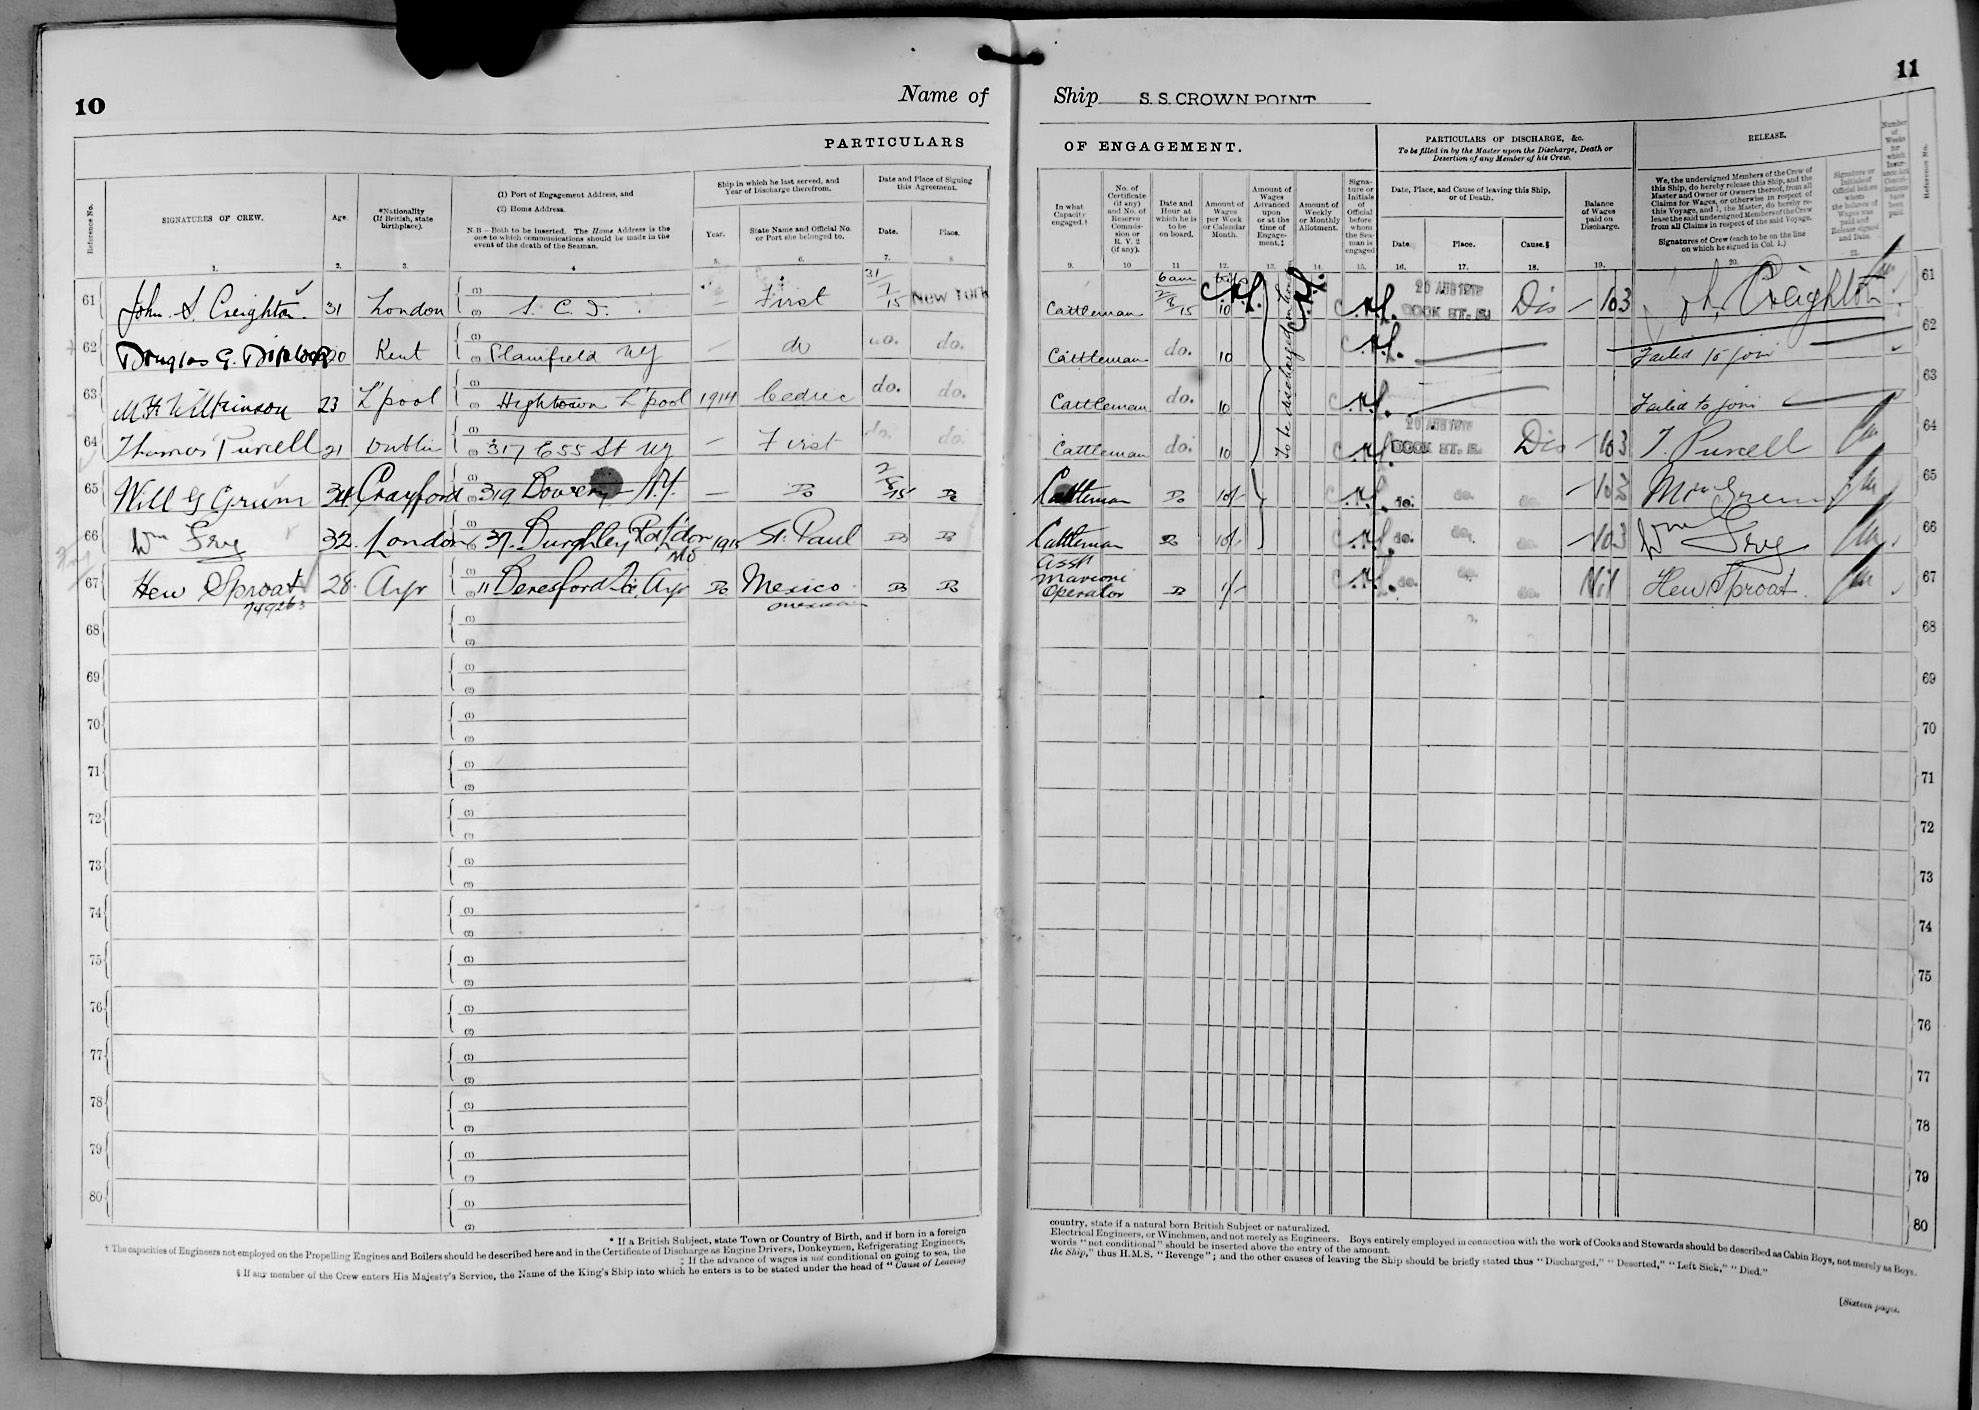 10
Name of
Ship S. S. CROWN POINT
11
PARTICULARS
OF ENGAGEMENT.
PARTICULARS OF DISCHARGE, &c.
To be filled in by the Master upon the Discharge, Death or
Desertion of any Member of his Crew.
RELEASE.
Number
of
Weeks
for
which
Reference No.
SIGNATURES OF CREW.
Age.
*Nationality
(If British, state
birthplace).
(1) Port of Engagement Address, and
(2) Home Address.
N.B — Both to be inserted. The Home Address is the
one to which communications should be made in the
event of the death of the Seaman.
Ship in which he last served, and
Year of Discharge therefrom.
Year.
State Name and Official No.
or Port she belonged to.
Date and Place of Signing
this Agreement.
Date.
Place.
In what
Capacity
engaged.†
No. of
Certificate
(if any)
and No. of
Reserve
Commis-
sion or
R. V. 2
(if any).
Date and
Hour at
which he is
to be
on board.
Amount of
Wages
per Week
or Calendar
Month.
Amount of
Wages
Advanced
upon
or at the
time of
Engage-
ment.‡
Amount of
Weekly
or Monthly
Allotment.
Signa-
ture or
Initials
of
Official
before
whom
the Sea-
man is
engaged
Date, Place, and Cause of leaving this Ship,
or of Death.
Date.
Place.
Cause.§
Balance
of Wages
paid on
Discharge.
We, the undersigned Members of the Crew of
this Ship, do hereby release this Ship, and the
Master and Owner or Owners thereof, from all
Claims for Wages, or otherwise in respect of
this Voyage, and I, the Master, do hereby re-
lease the said undersigned Members of the Crew
from all Claims in respect of the said Voyage.
Signatures of Crew (each to be on the line
on which he signed in Col. 1.)
Signature or
Initials of
Official before
whom
the balance of
Wages was
paid and
Release signed
and Date.
Reference No.
1. 2. 3. 4 5. 6. 7. 8 9. 10 11 12. 13. 14. 15. 16. 17. 18. 19. 20. 21.
61 John S. Creighton 31 London (1) (2) S. C. I. — First 31/7/15 NEW YORK Cattleman 6 am 2/8/15 10 DOCK ST. E. Dis 103 Creighton 61
62 Douglas G. 20 Kent (1) (2) Plainfield NJ — do do. do. Cattleman do. 10 Failed to join 62
63 Wilkinson 23 L'pool (1) (2) Hightown L'pool 1914 Cedric do. do. Cattleman do. 10 Failed to join 63
64 Thomas Purcell 21 Dublin (1) (2) 317 E 55 St NY — First do. do. Cattleman do. 10 DOCK ST. E. Dis 103 T. Purcell 64
To be discharged in London
65 Will G 34 Crayford (1) (2) 319 Bowery N.Y. — Do 2/8/15 Do Cattleman Do 10/- do. do. do. 103 65
66 Wm Frye 32. London (1) (2) 37. Burghley Rd L'don 1915 St. Paul Do Do Cattleman Do 10/- do. do. do. 103 Wm Frye 66
67 Hew Sproat 28 Ayr (1) (2) 11 Beresford Ayr Do Mexico Do Do Asst. Marconi Operator Do 1/- do. do. do. Nil Hew Sproat 67
68 (1) (2) 68
69 (1) (2) 69
70 (1) (2) 70
71 (1) (2) 71
72 (1) (2) 72
73 (1) (2) 73
74 (1) (2) 74
75 (1) (2) 75
76 (1) (2) 76
77 (1) (2) 77
78 (1) (2) 78
79 (1) (2) 79
80 (1) (2) 80
* If a British Subject, state Town or Country of Birth, and if born in a foreign
country, state if a natural born British Subject or naturalized.
† The capacities of Engineers not employed on the Propelling Engines and Boilers should be described here and in the Certificate of Discharge as Engine Drivers, Donkeymen, Refrigerating Engineers,
Electrical Engineers, or Winchmen, and not merely as Engineers. Boys entirely employed in connection with the work of Cooks and Stewards should be described as Cabin Boys, not merely as Boys.
‡ If the advance of wages is not conditional on going to sea, the
words "not conditional" should be inserted above the entry of the amount.
§ If any member of the Crew enters His Majesty's Service, the Name of the King's Ship into which he enters is to be stated under the head of "Cause of Leaving
the Ship," thus H.M.S. "Revenge"; and the other causes of leaving the Ship should be briefly stated thus "Discharged," "Deserted," "Left Sick," "Died."
[Sixteen pages.